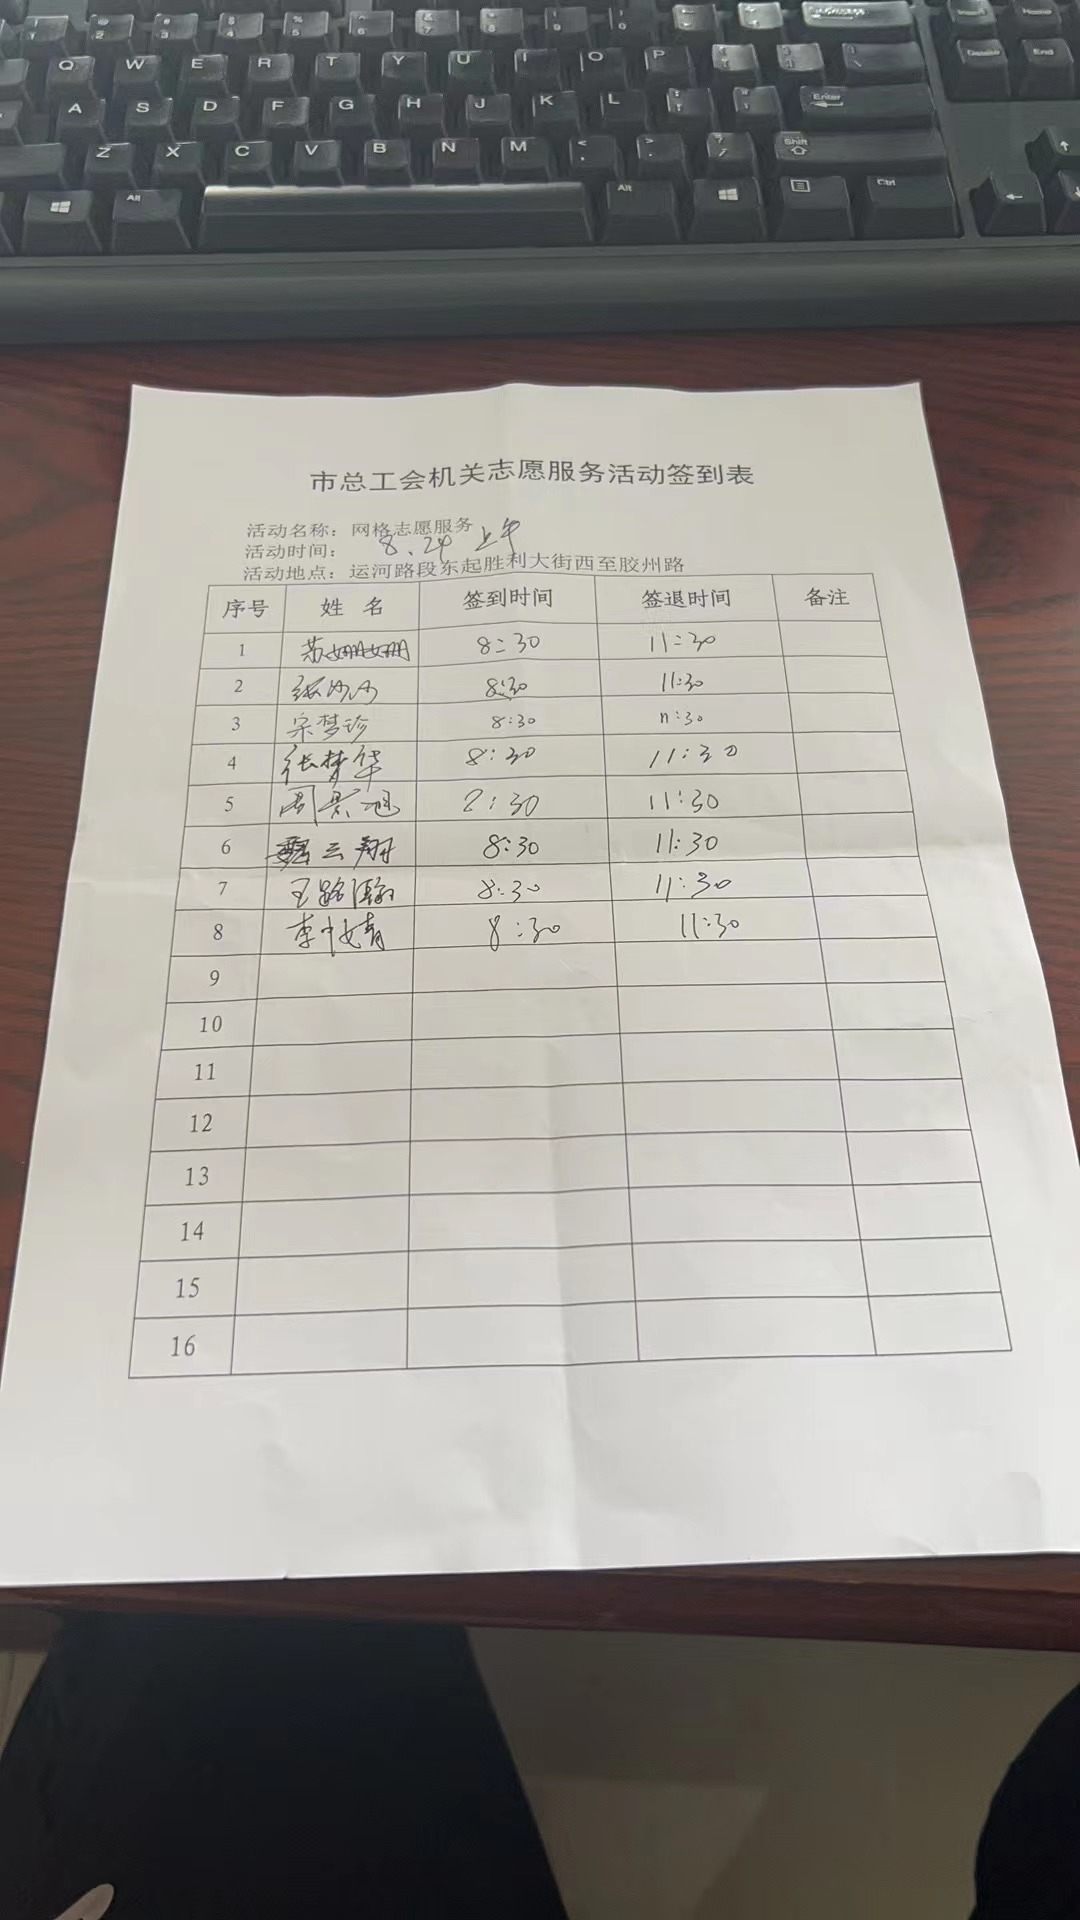 Q W E R T Y U I O P
A S D F G H J K L Enter
Z X C V B N M Shift
Alt Alt Ctrl
Delete End
市总工会机关志愿服务活动签到表
活动名称：网格志愿服务
活动时间： 8.24 上午
活动地点：运河路段东起胜利大街西至胶州路
序号 姓 名 签到时间 签退时间 备注
1 苏姗姗 8:30 11:30
2 张沙沙 8:30 11:30
3 宋梦珍 8:30 11:30
4 张梦华 8:30 11:30
5 周景旭 8:30 11:30
6 魏云翔 8:30 11:30
7 王路瀚 8:30 11:30
8 李中婧 8:30 11:30
9
10
11
12
13
14
15
16